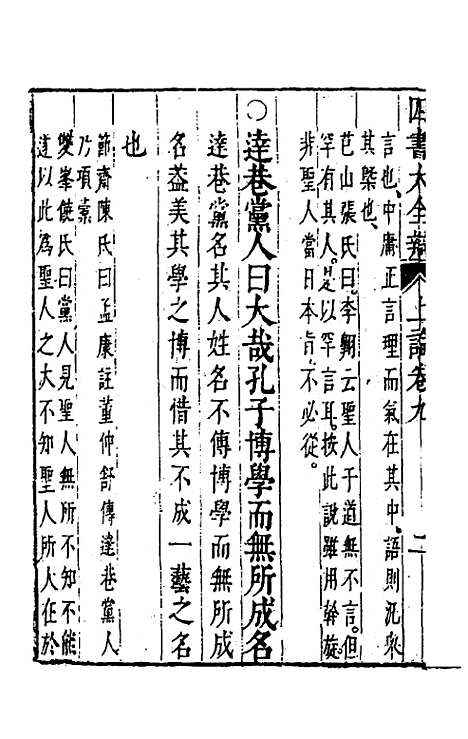 四書大全辯 上論卷九 二
言也、中庸正言理而氣在其中、語則汎衆
其槩也、
芑山張氏曰、李翺云聖人于道無不言、但
罕有其人、是以罕言耳、按此說雖用斡旋、
非聖人當日本肯、不必從。
○達巷黨人曰大哉孔子博學而無所成名
達巷黨名其人姓名不傳博學而無所成
名葢美其學之博而借其不成一藝之名
也
節齋陳氏曰孟康註董仲舒傳達巷黨人
乃項橐
雙峯饒氏曰黨人見聖人無所不知不能
遂以此爲聖人之大不知聖人所大在於